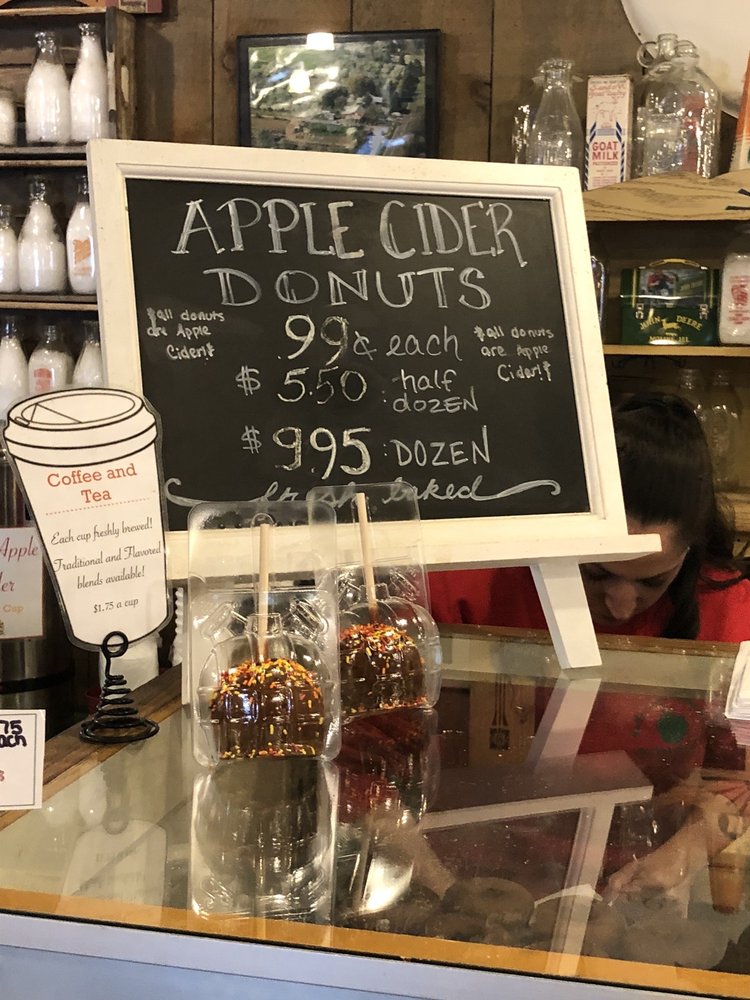 APPLE CIDER
DONUTS
*all donuts
are Apple
Cider!*
.99¢ each
$5.50 : half
dozen
$9.95 : DOZEN
fresh baked
*all donuts
are Apple
Cider!*
Coffee and
Tea
Each cup freshly brewed!
Traditional and Flavored
blends available!
$1.75 a cup
Apple
Cup
75
GOAT
MILK
JOHN DEERE